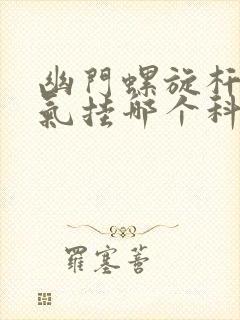 幽門螺旋杆
氣挂哪个科
羅塞菩